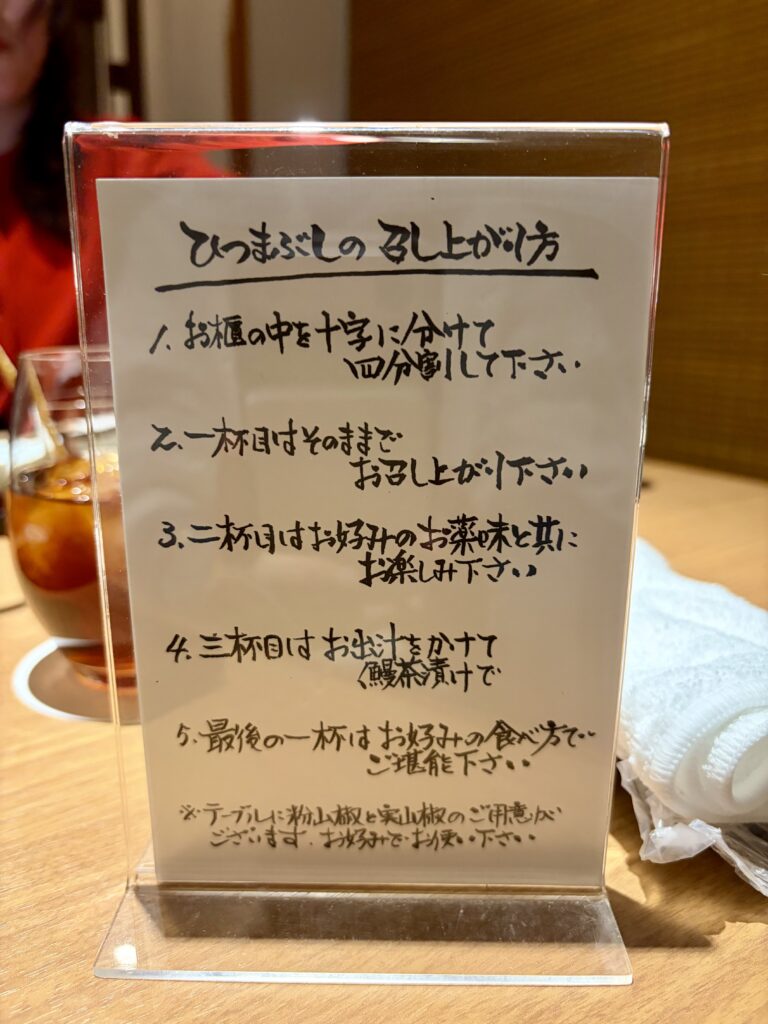 ひつまぶしの召し上がり方
1. お櫃の中を十字に分けて
四分割して下さい
2. 一杯目はそのままで
お召し上がり下さい
3. 二杯目はお好みのお薬味と共に
お楽しみ下さい
4. 三杯目はお出汁をかけて
鰻茶漬けで
5. 最後の一杯はお好みの食べ方で
ご堪能下さい
※テーブルに粉山椒と実山椒のご用意が
ございます。お好みでお使い下さい